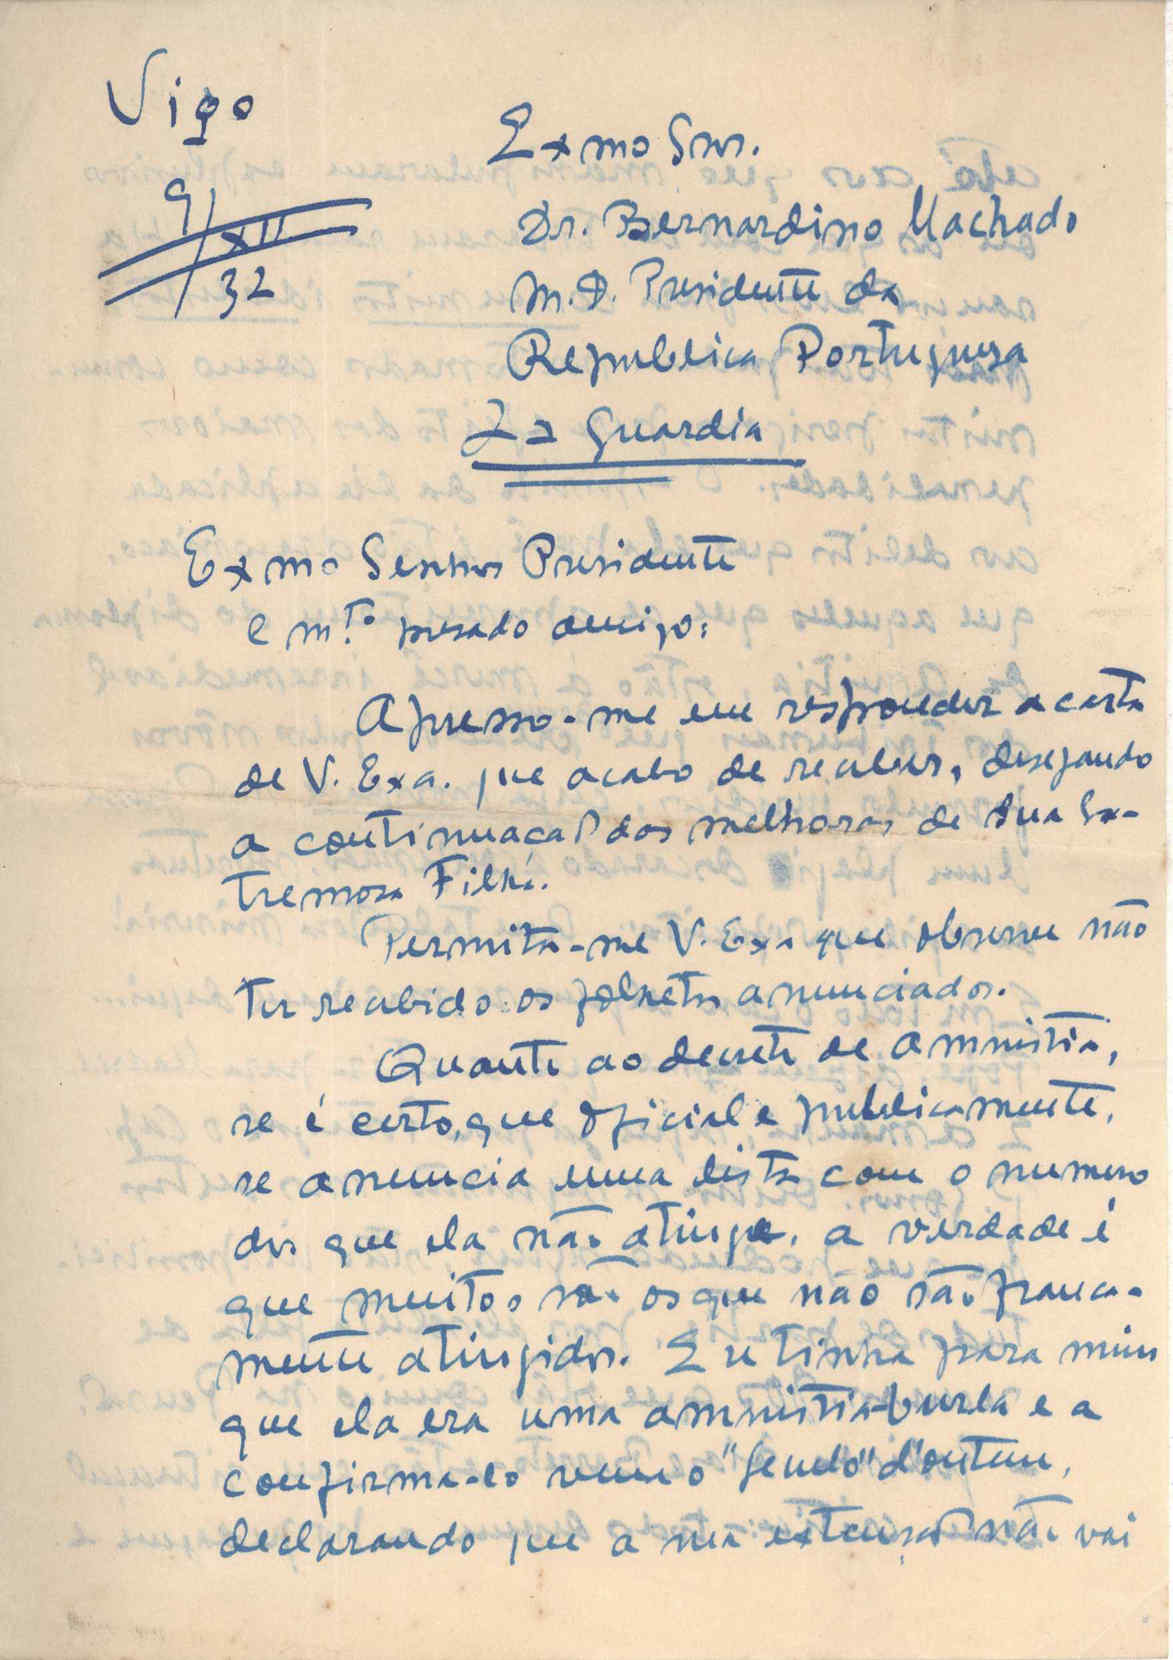 Vigo
9/XII
32
Exmo Snr.
Dr. Bernardino Machado
M.D. Presidente da
Republica Portuguesa
La Guardia
Exmo Senhor Presidente
e m.to presado amigo:
Apresso-me em responder a carta
de V. Exa. que acabo de receber, desejando
a continuação das melhoras de sua Ex-
tremosa Filha.
Permita-me V. Exa que observe não
ter recebido os folhetos anunciados.
Quanto ao decreto de amnistia,
se é certo, que oficial e publicamente,
se anuncia uma lista com o numero
dos que ela não atinge, a verdade é
que muitos são os que não são franca-
mente atingidos. Eu tinha para mim
que ela era uma amnistia-burla e a
confirma-lo veem o "Seculo" d'ontem,
declarando que a sua extensão não vai